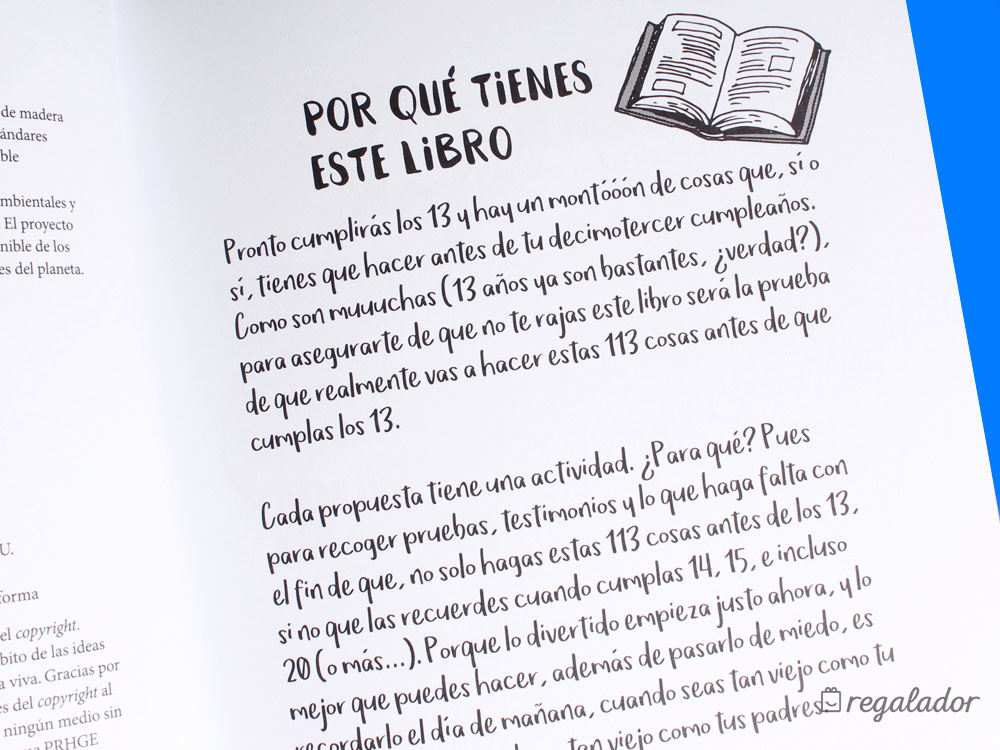 de madera
ándares
ble
mbientales y
. El proyecto
nible de los
es del planeta.
U.
forma
el copyright.
bito de las ideas
a viva. Gracias por
es del copyright al
ningún medio sin
PRHGE
POR QUÉ TIENES
ESTE LIBRO
Pronto cumplirás los 13 y hay un montóóón de cosas que, sí o
sí, tienes que hacer antes de tu decimotercer cumpleaños.
Como son muuuchas (13 años ya son bastantes, ¿verdad?),
para asegurarte de que no te rajas este libro será la prueba
de que realmente vas a hacer estas 113 cosas antes de que
cumplas los 13.
Cada propuesta tiene una actividad. ¿Para qué? Pues
para recoger pruebas, testimonios y lo que haga falta con
el fin de que, no solo hagas estas 113 cosas antes de los 13,
si no que las recuerdes cuando cumplas 14, 15, e incluso
20 (o más...). Porque lo divertido empieza justo ahora, y lo
mejor que puedes hacer, además de pasarlo de miedo, es
recordarlo el día de mañana, cuando seas tan viejo como tu
tan viejo como tus padres
regalador